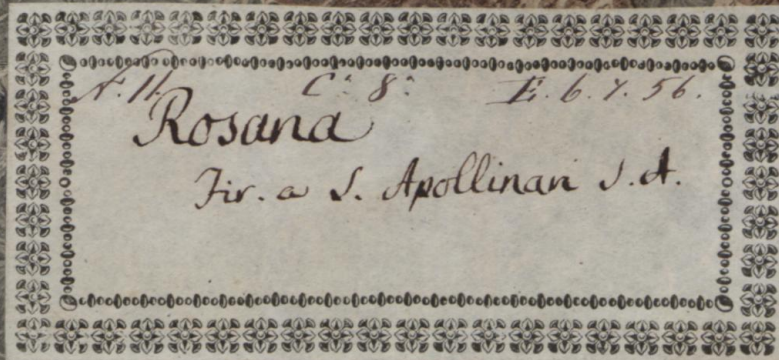 N. 11. C.º 8º E. 6. 7. 56.
Rosana
Fir. a S. Apollinari S. A.